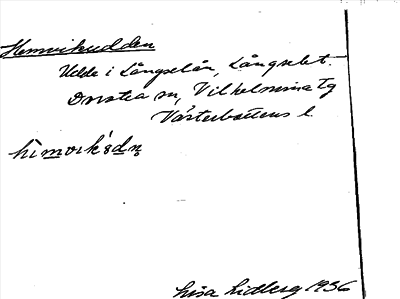 Hemvikudden
Udde i Långselån, Långselet.
Dorotea sn, Vilhelmina tg
Västerbottens l.
hìmvikúdn̥
Lisa Lidberg 1936